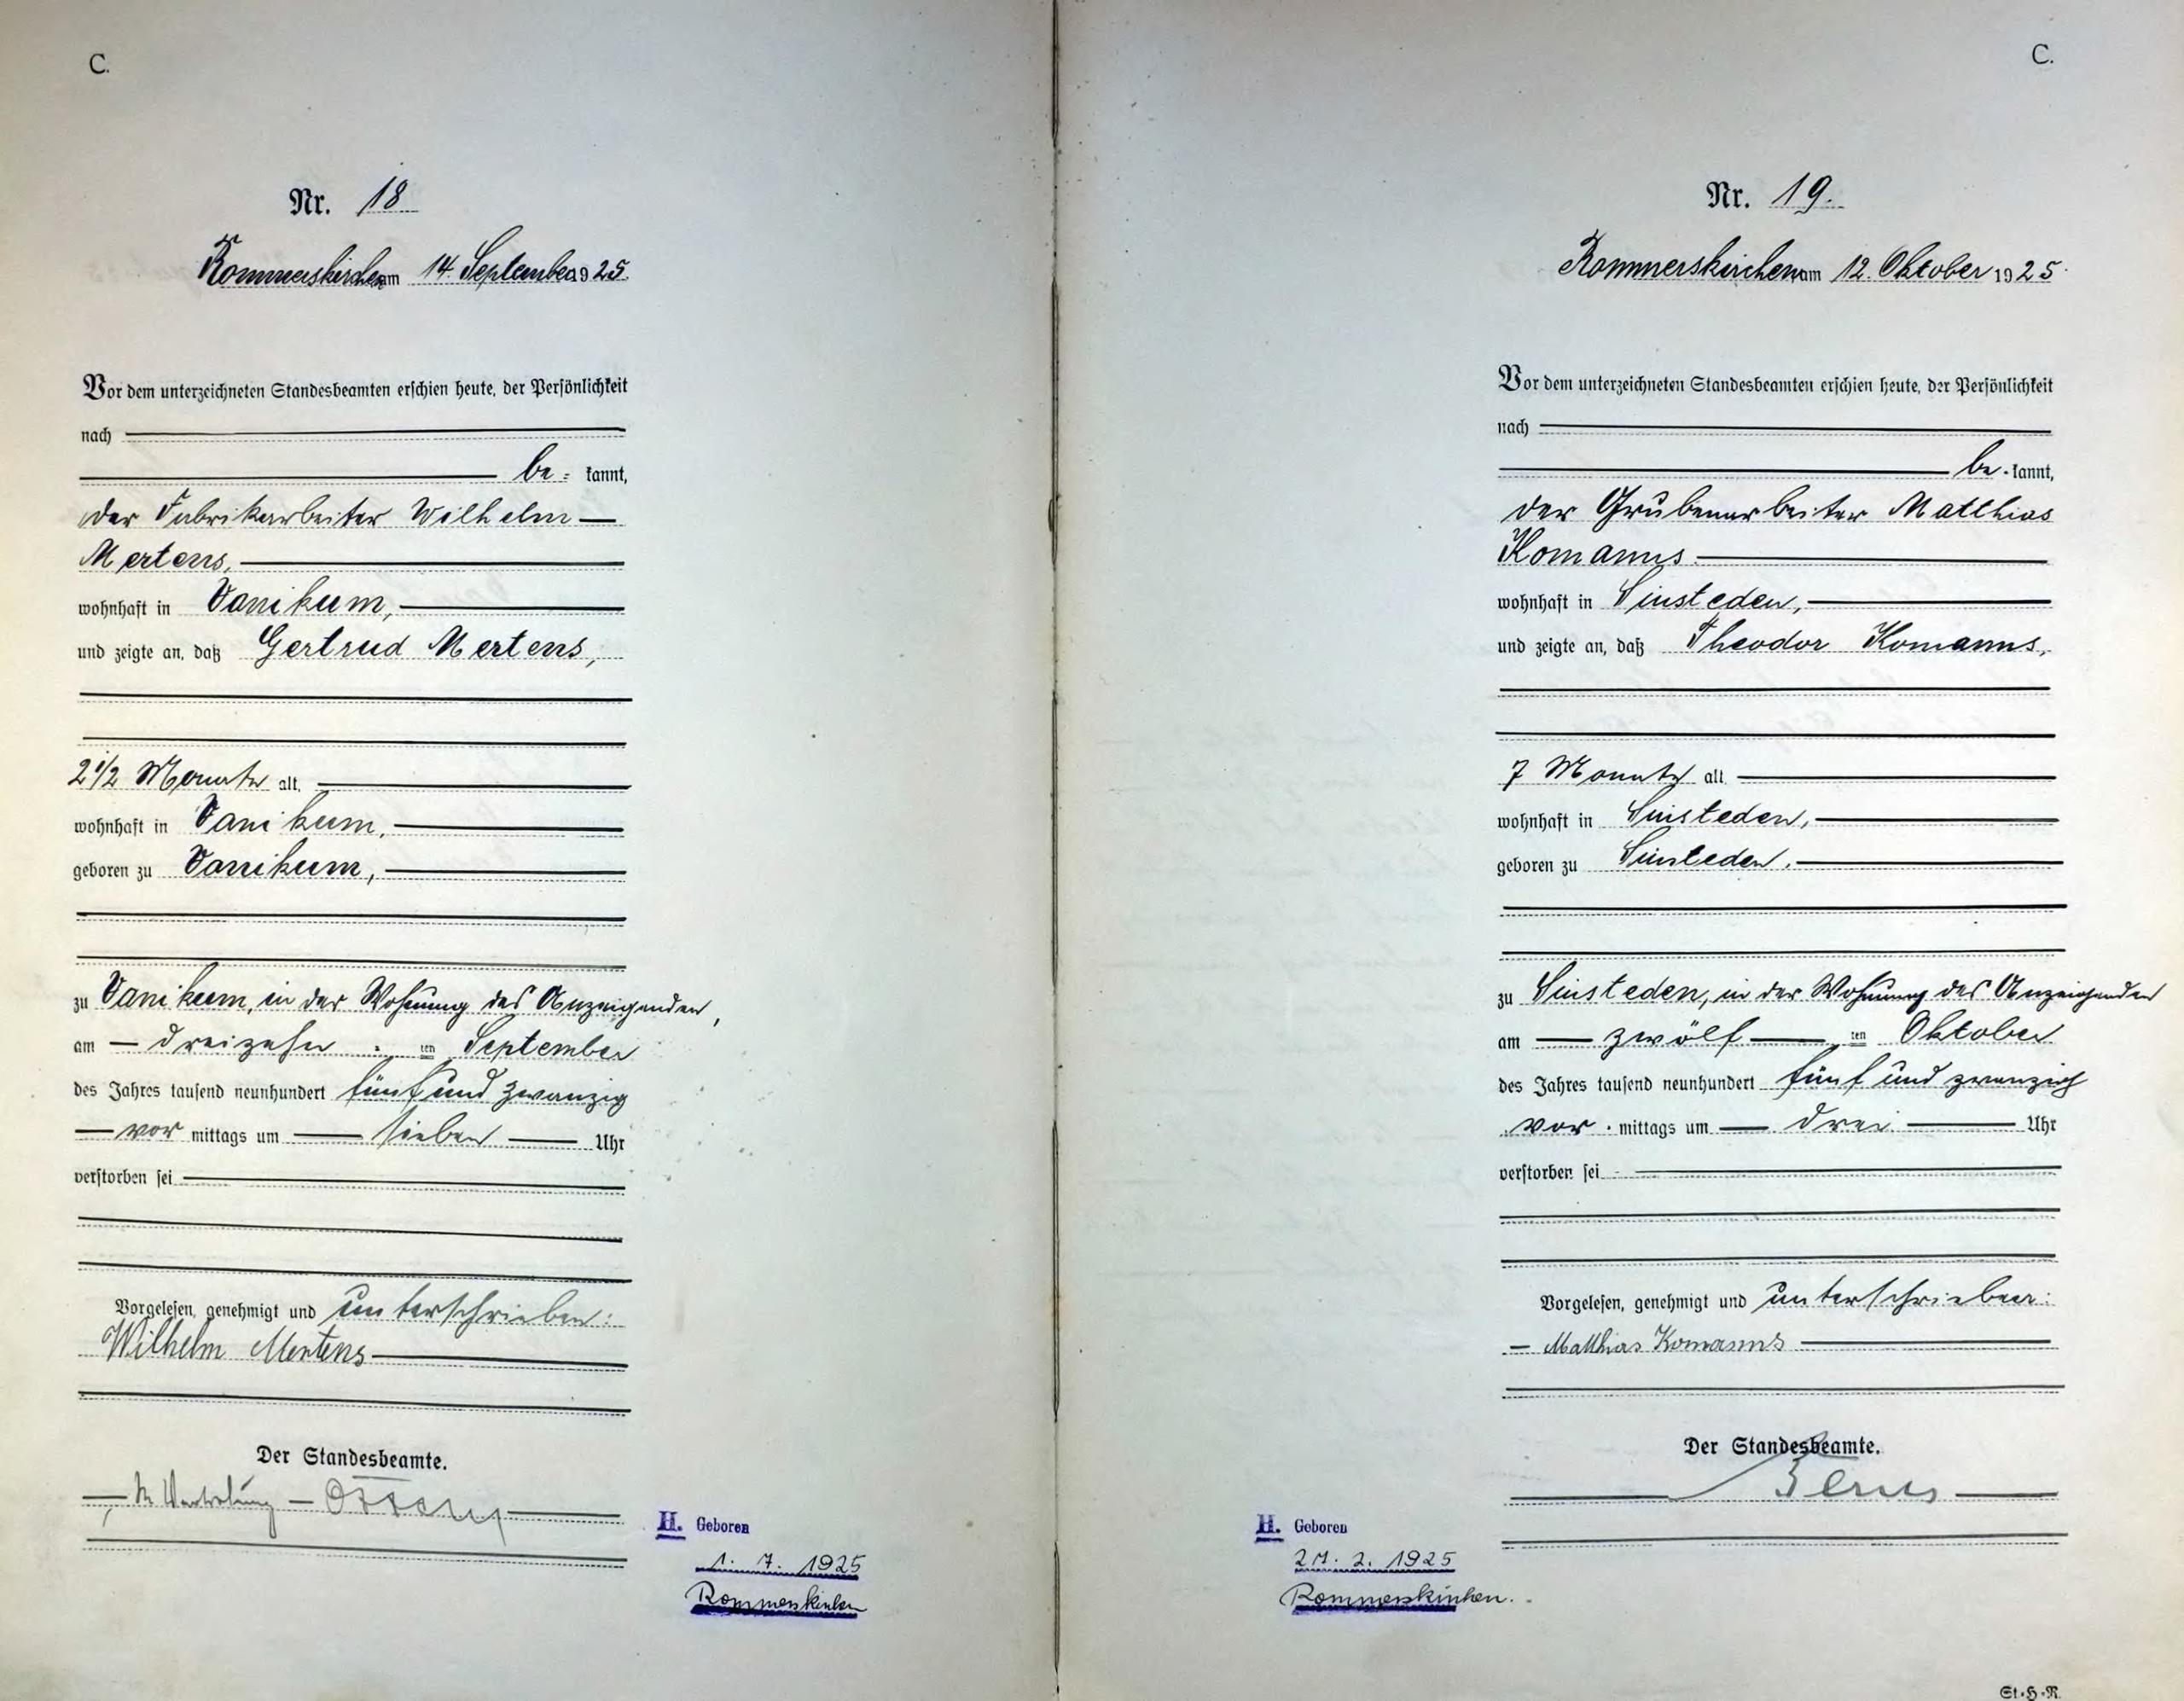 C.
Nr. 18
Rommerskirchen am 14. September 1925.
Vor dem unterzeichneten Standesbeamten erschien heute, der Persönlichkeit
nach
be = kannt,
der Fabrikarbeiter Wilhelm
Mertens,
wohnhaft in Vanikum,
und zeigte an, daß Gertrud Mertens,
2 1/2 Monate alt,
wohnhaft in Vanikum,
geboren zu Vanikum,
zu Vanikum, in der Wohnung des Anzeigenden,
am dreizehn ten September
des Jahres tausend neunhundert fünfundzwanzig
vor mittags um sieben Uhr
verstorben sei
Vorgelesen, genehmigt und unterschrieben:
Wilhelm Mertens
Der Standesbeamte.
In Vertretung
H. Geboren
1. 7. 1925
Rommerskirchen
C.
Nr. 19.
Rommerskirchen am 12. Oktober 1925.
Vor dem unterzeichneten Standesbeamten erschien heute, der Persönlichkeit
nach
be - kannt,
der Grubenarbeiter Matthias
Komanns
wohnhaft in Sinsteden,
und zeigte an, daß Theodor Komanns,
7 Monate alt
wohnhaft in Sinsteden,
geboren zu Sinsteden,
zu Sinsteden, in der Wohnung des Anzeigenden
am zwölf ten Oktober
des Jahres tausend neunhundert fünf und zwanzig
vor mittags um drei Uhr
verstorben sei
Vorgelesen, genehmigt und unterschrieben:
Matthias Komanns
Der Standesbeamte.
H. Geboren
2. 1925
Rommerskirchen.
St.H.R.